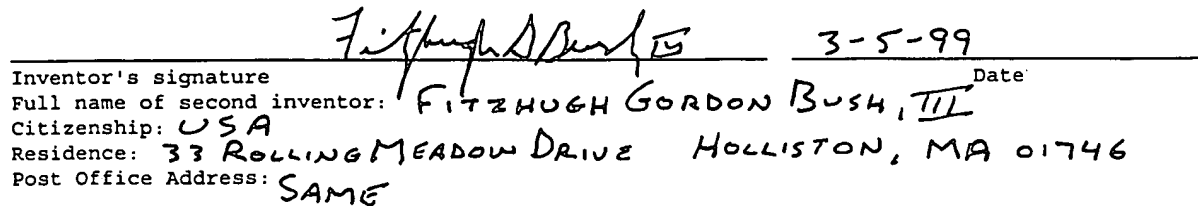 Fitzhugh G Bush III 3-5-99
Inventor's signature Date
Full name of second inventor: FITZHUGH GORDON BUSH, III
Citizenship: USA
Residence: 33 ROLLING MEADOW DRIVE HOLLISTON, MA 01746
Post Office Address: SAME